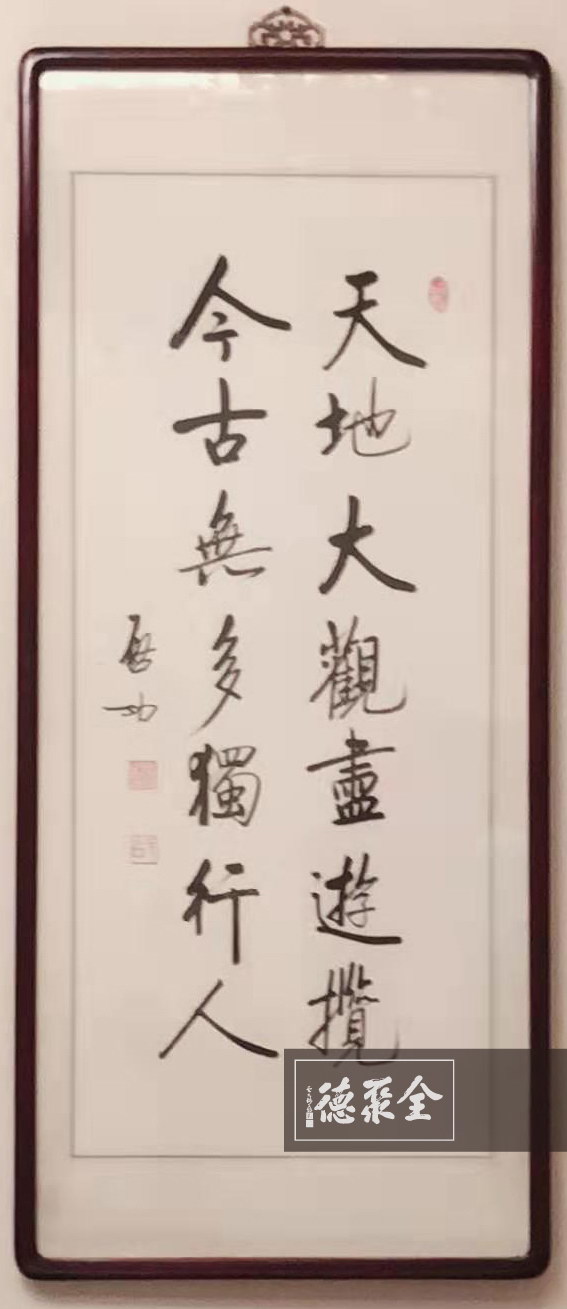 天地大觀盡遊攬
今古無多獨行人
啟功
全聚德